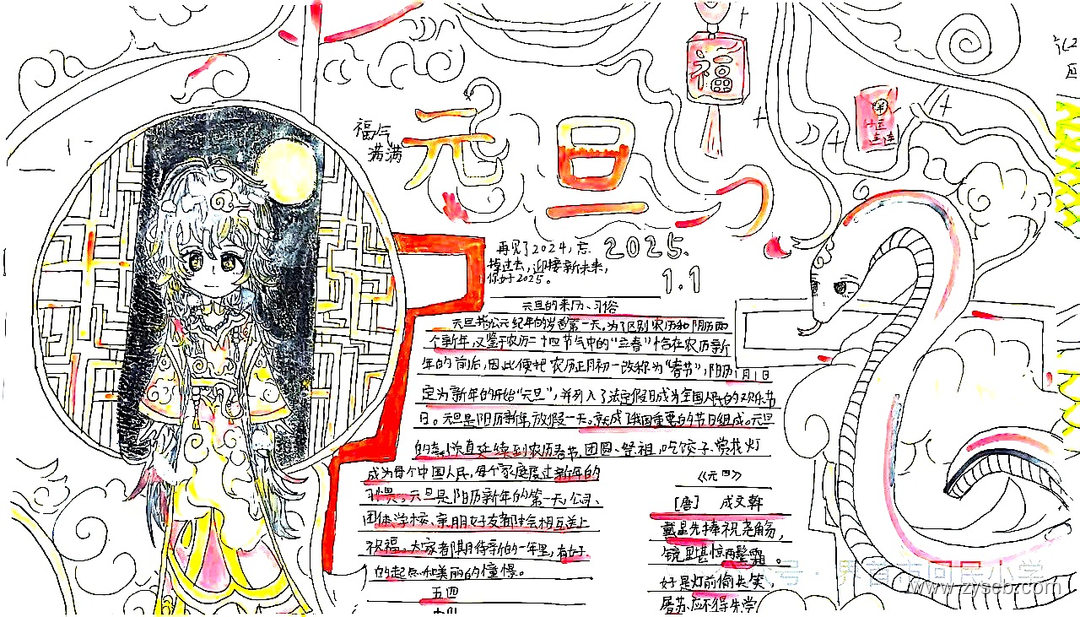 福气
满满
元旦
福
再见了2024,忘
掉过去,迎接新未来,
你好2025。
2025.
1.1
元旦的来历、习俗
元旦指公元纪年的岁首第一天。为了区别农历和阳历两
个新年,又鉴于农历二十四节气中的“立春”恰在农历新
年的前后,因此便把农历正月初一改称为“春节”,阳历1月1日
定为新年的开始“元旦”,并列入了法定假日成为全国人民的欢乐节
日。元旦是阳历新年,放假一天,
一直延续到农历春节,团圆、祭祖,吃饺子、赏花灯
成为每个中国人民,每个家庭度过新年的
习惯。元旦是阳历新年的第一天,公司、
团体,学校、亲朋好友都会相互送上
祝福。大家都期待新的一年里,有好
的起点和美丽的憧憬。
五四
《元日》
[唐] 成文幹
戴星先捧祝尧觞,
镜里堪惊两鬓霜。
好是灯前偷失笑,
屠苏应不得先尝
www.zyseb.com